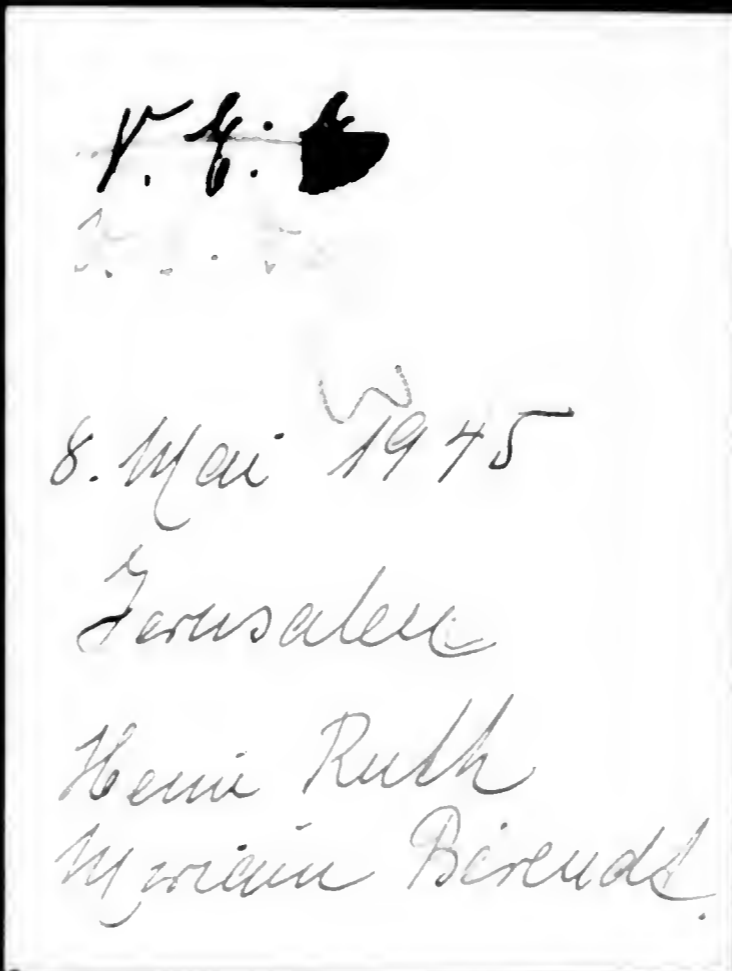 8. Mai 1945
Jerusalem
Heini Ruth
Myriam Berendt.